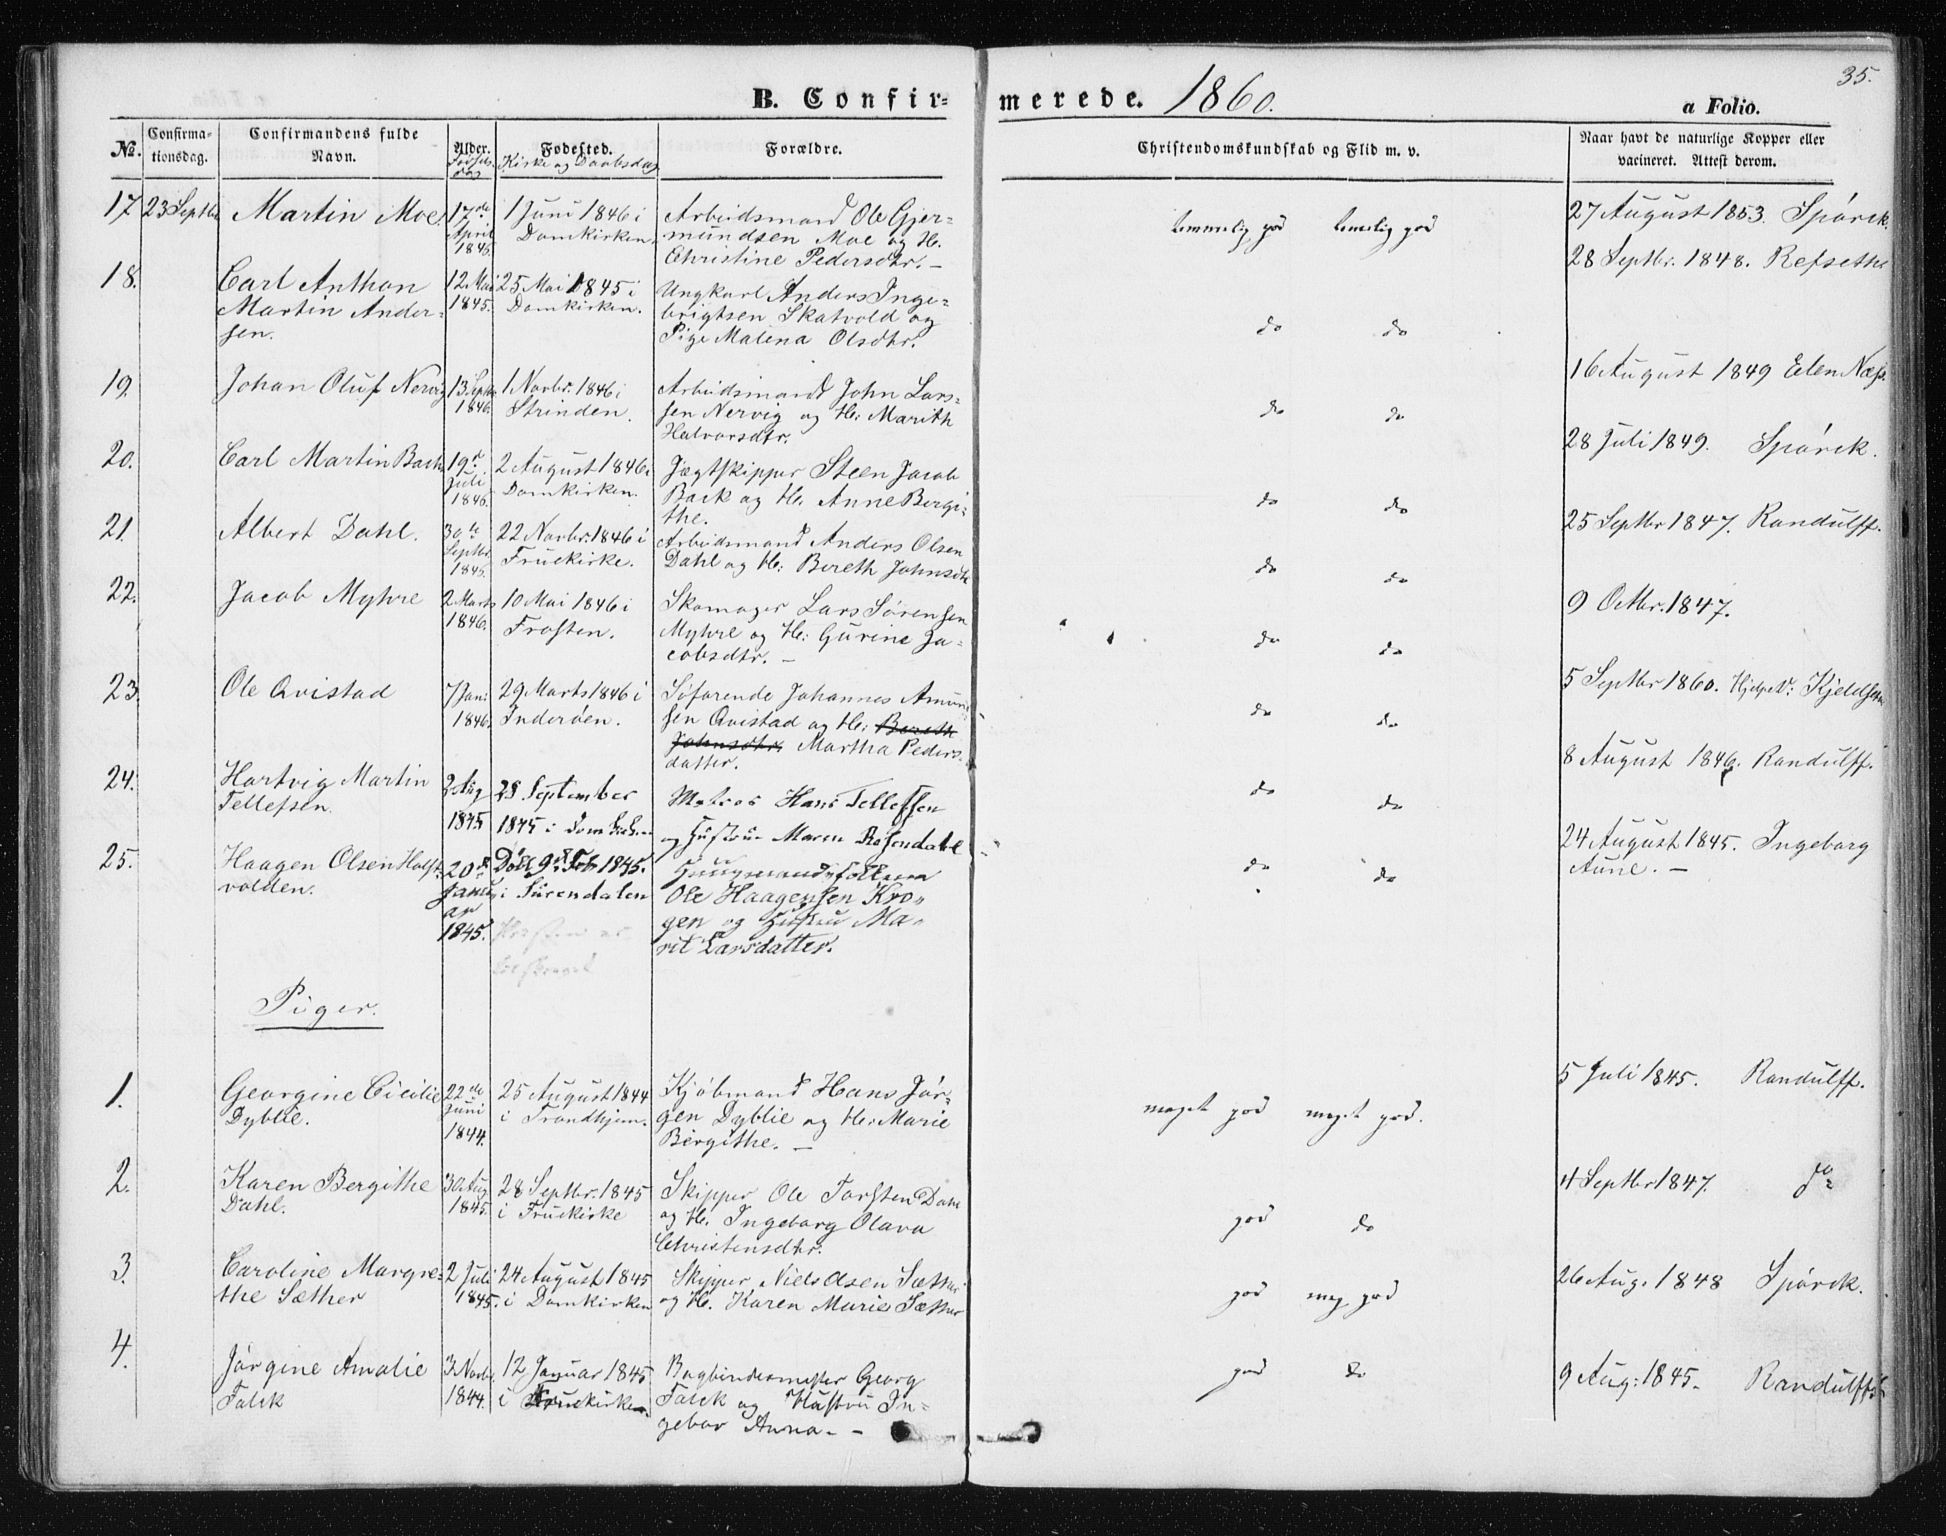 35.
B. Confir-merede. 1860.
a Folio.
No. Confirma-tionsdag. Confirmandens fulde Navn. Alder. Fødselsdag Fødested. Kirke og Daabsdag Forældre. Christendomskundskab og Flid m. v. Naar havt de naturlige Kopper eller vacineret. Attest derom.
17. 23 Septbr Martin Moe. 17de 1 Juni 1846 i Arbeidsmand Ole Gjer- temmelig god temelig god 27 August 1853. Spörck.
April Domkirken. mundsen Moe og H.
1846. Christine Pedersdtr. —
18. Carl Anthon 12 Mai 25 Mai 1845 i Ungkarl Anders Inge- do do 28 Septbr. 1848. Refseth
Martin Ander- 1845. Domkirken. brigtsen Skatvold og
sen. Pige Malena Olsdtr.
19. Johan Oluf Nervig 13 Septbr 1 Novbr. 1846 i Arbeidsmand John Lars- do do 16 August 1849 Elen Næss.
1846. Strinden. sen Nervig og H: Marith
Halvorsdtr.
20. Carl Martin Back 19de 2 August 1846 i Jægtskipper Steen Jacob do do 28 Juli 1849. Spörck.
Juli Domkirken. Back og H. Anne Bergi-
1846. the.
21. Albert Dahl. 30te 22 Novbr. 1846 i Arbeidsmand Anders Olsen do do 25 Septbr 1847. Randulff.
Septbr. Fruekirke. Dahl og H: Bereth Johnsdtr
22. Jacob Myhre 2 Marts 10 Mai 1846 i Skomager Lars Sørensen do do 9 Octbr. 1847.
1846. Frosten. Myhre og H: Gurine Ja-
cobsdtr. —
23. Ole Qvistad 7 Jan: 29 Marts 1846 i Søfarende Johannes Amun- do do 5 Septbr 1860. Hjelpev: Kjeldsen
1846. Inderøen. sen Qvistad og H: Bereth
Johnsdtr. Martha Peders-
datter.
24. Hartvig Martin 2 Aug 28 September Matros Hans Tellefsen do do 8 August 1846. Randulff.
Tellefsen. 1845 1845 i Domkirken og Hustru Maren Rosendahl
25. Haagen Olsen Holst- 20de Döbt 9de Feb 1845. Huusmandsfolkene do do 24 August 1845. Ingeborg
volden. Janu- i Surendalen Ole Haagensen Kro- Aune. —
ar gen og Hustru Ma-
1845. rit Larsdatter.
Piger.
1. Georgine Cicilie 22de 25 August 1844 Kjøbmand Hans Jør- meget god meget god. 5 Juli 1845. Randulff.
Dyblie. Juni i Trondhjem. gen Dyblie og H: Marie
1844. Bergithe. —
2. Karen Bergithe 30 Aug 28 Septbr. 1845 Skipper Ole Torsten Dahl god do 4 Septbr 1847. do
Dahl. 1845. i Fruekirke og H. Ingeborg Olava
Christensdtr.
3. Caroline Margre- 2 Juli 24 August 1845 Skipper Niels Olsen Sæther god meg god 26 Aug. 1848 Spörck.
the Sæther 1845. i Domkirken og H. Karen Marie Sæther
4. Jørgine Amalie 3 Novbr. 12 Januar 1845 Bogbindermester Georg god do 9 Aug: 1845. Randulff.
Falck 1844. i Fruekirken. Falck og Hustru In-
gebor Anna. —